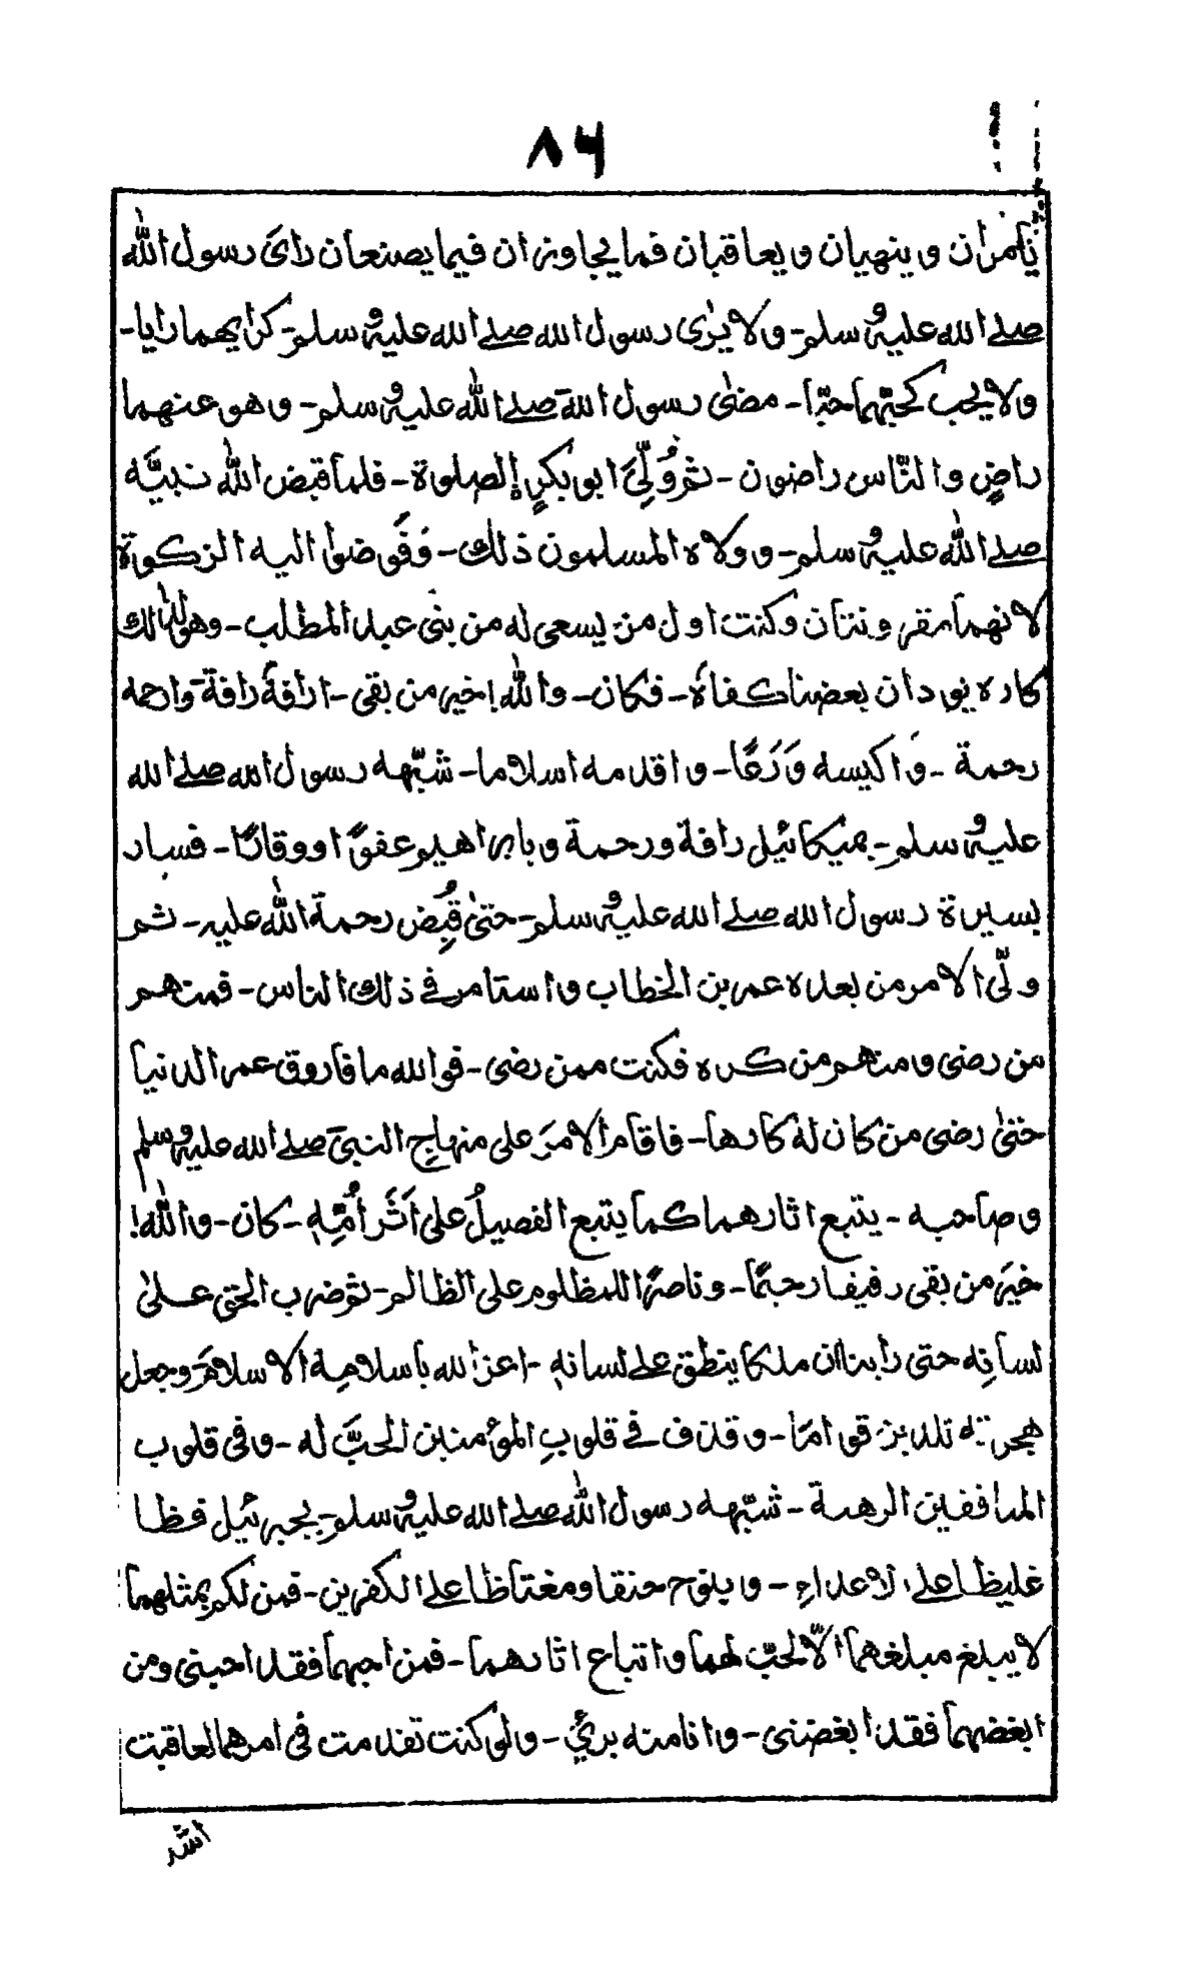 ٨٦
يأمران وينهيان ويعاقبان فما يجاوزان فيما يصنعان رائ رسول الله
صلے الله عليه وسلم۔ ولا يرٰى رسول الله صلے الله عليه وسلم۔ كرأيهما رايا۔
ولا يحب كحبّهما حبّا۔ مضىٰ رسول الله صلے الله عليه وسلم۔ وهو عنهما
راضٍ والنّاس راضون۔ ثم وُلِّيَ ابو بكرٍ الصلوة۔ فلما قبض الله نبيَّه
صلے الله عليه وسلم۔ وولاه المسلمون ذلك۔ وَفَّوضوا اليه الزكوة
لانهما مقرونتان وكنت اول من يسعى له من بنى عبد المطلب۔ وهو لذالك
كاره يود ان بعضنا كفاهُ۔ فكان۔ والله! خير من بقى۔ ارافةً رافة وارحمه
رحمة۔ وَاكيسه وَرَعًا۔ واقدمه اسلاما۔ شبّهه رسول الله صلے الله
عليه وسلم۔ بميكائيل رافة ورحمة وبابراهيم عفوًا ووقارًا۔ فسار
بسيرة رسول الله صلے الله عليه وسلم۔ حتىٰ قُبِض رحمة الله عليه۔ ثم
ولّى الامر من بعده عمر بن الخطاب واستامر فے ذلك الناس۔ فمنهم
من رضى ومنهم من كره فكنت ممن رضى۔ فوالله ما فاروق عمر الدنيا
حتىٰ رضى من كان لهٗ كارها۔ فاقام الامرَ على منهاجِ النبيّ صلے الله عليه وسلم
وصاحبه۔ يتبع اثارهما كما يتبع الفصيلُ على اَثَر اُمِّهٖ۔ كان۔ والله!
خيرَ من بقى رفيقا رحيمًا۔ وناصرًا للمظلوم على الظالم۔ ثم ضرب الحق علىٰ
لسانِه حتى رأينا ان ملكا ينطق علے لسانهٖ۔ اعز الله باسلامِه الاسلامَ وجعل
هجرته للدين قوامًا۔ وقذف فے قلوبِ المؤمنين الحبَّ له۔ وفى قلوب
المنافقين الرهبة۔ شبّهه رسول الله صلے الله عليه وسلم۔ بجبرئيل فظا
غليظا على الاعداءِ۔ وبنوح حنقا ومغتاظا على الكفرين۔ فمن لكم بمثلهما
لا يبلغ مبلغهما الّا الحبّ لهما واتباع اثارهما۔ فمن احبهما فقد احبنى ومن
ابغضهما فقد ابغضنى۔ وانا منه برئٌ۔ ولو كنت تقدمت فى امرهما لعاقبت
اشد